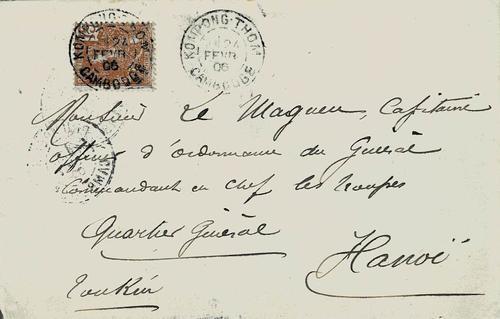 KOMPONG-THOM
24
FEVR
06
CAMBODGE
KOMPONG-THOM
24
FEVR
06
CAMBODGE
Monsieur Le Magueu, Capitaine
officier d'ordonnance du Général
Commandant en chef les troupes
Quartier Général
Hanoï
Tonkin